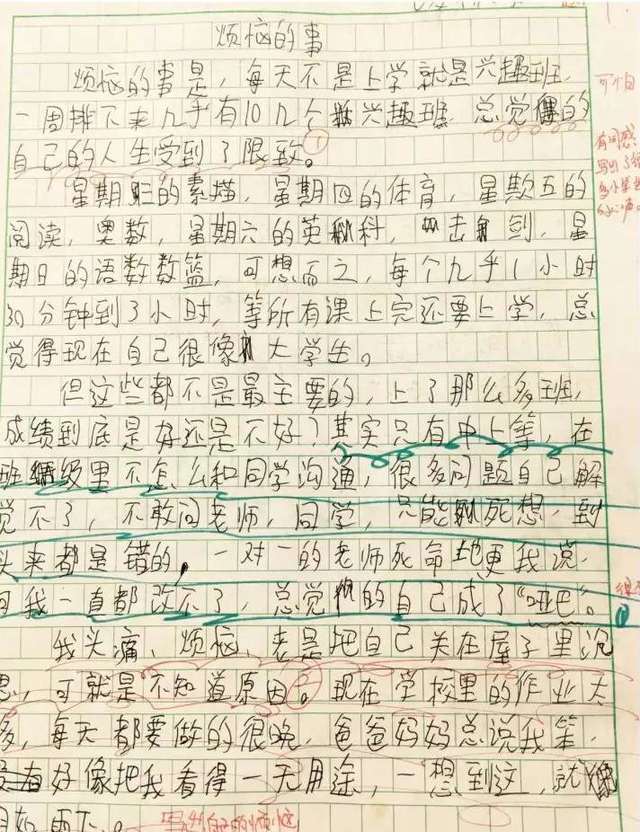 烦恼的事
烦恼的事是，每天不是上学就是兴趣班，
一周排下来几乎有10几个兴趣班，总觉得的
自己的人生受到了限致。
星期二的素描，星期四的体育，星期五的
阅读，奥数，星期六的英科，击剑，星
期日的语数数篮，可想而之，每个几乎1小时
30分钟到3小时，等所有课上完还要上学，总
觉得现在自己很像大学生。
但这些都不是最主要的，上了那么多班，
成绩到底是好还是不好？其实只有中上等，在
班级里不怎么和同学沟通，很多问题自己解
觉不了，不敢问老师，同学，只能死想，到
头来都是错的，一对一的老师死命地更我说，
可我一直都改不了，总觉的自己成了“哑巴”。
我头痛，烦恼，老是把自己关在屋子里沉
思，可就是不知道原因？现在学校里的作业太
多，每天都要做的很晚，爸爸妈妈总说我笨，
好像把我看得一无用途，一想到这，就像
如雨下。
写出自己的烦恼
有同感